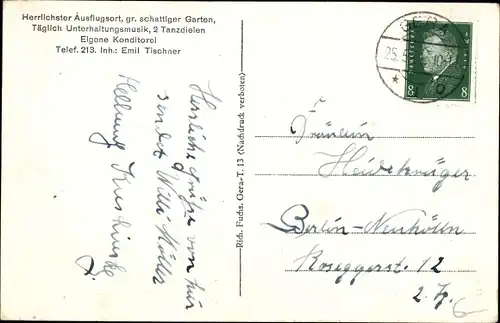 Herrlichster Ausflugsort, gr. schattiger Garten,
Täglich Unterhaltungsmusik, 2 Tanzdielen
Eigene Konditorei
Telef. 213. Inh: Emil Tischner
Herzliche Grüße von hier
sendet Willi Müller
Hellmuth
Rich. Fuchs, Gera-T. 13 (Nachdruck verboten)
GERA
25.5
8 8
Fräulein
Heidekrüger
Berlin-Neukölln
Roseggerst. 12